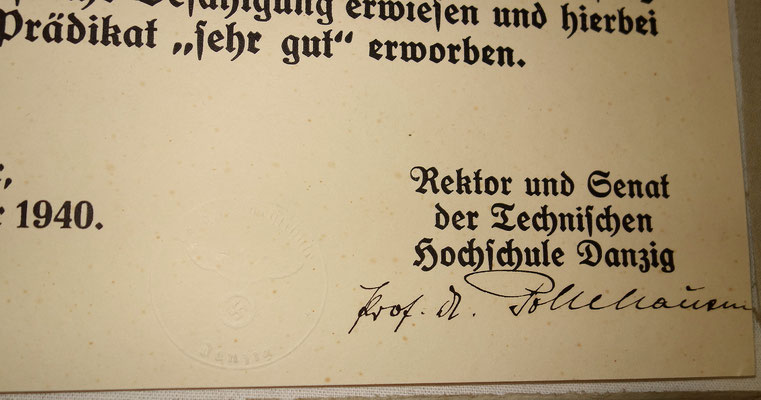 Befähigung erwiesen und hierbei
Prädikat „sehr gut“ erworben.
1940.
Rektor und Senat
der Technischen
Hochschule Danzig
Prof. Dr. Pohlhausen